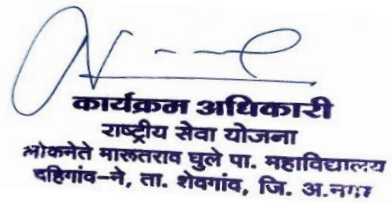 कार्यक्रम अधिकारी
राष्ट्रीय सेवा योजना
लोकनेते मारूतराव घुले पा. महाविद्यालय
दहिगांव–ने, ता. शेवगांव, जि. अ.नगर